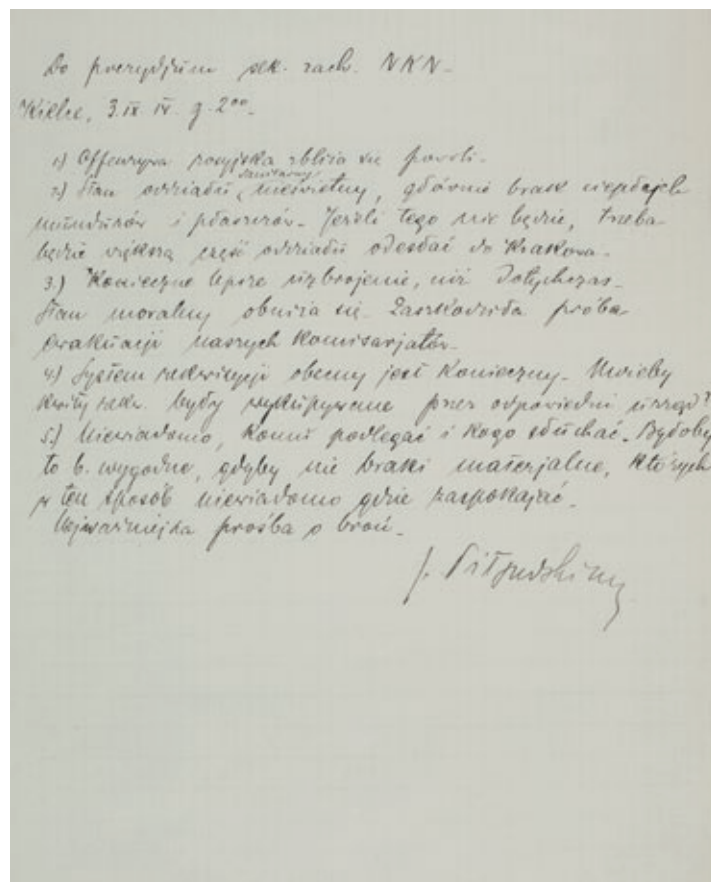 Do prezydjum sek. zach. NKN-
Kielce, 3.IX. g. 2⁰⁰.
1) Offenzywa rosyjska zbliża się powoli.
2) Stan oddziału sanitarny nieświetny, głównie brak ciepłych
mundurów i płaszczów. Jeżeli tego nie będzie, trzeba
będzie większą część oddziału odesłać do Krakowa.
3.) Konieczne lepsze uzbrojenie, niż dotychczas.
Stan moralny obniża się. Zaszkodziła próba
ewakuacji naszych Komisarjatów.
4.) System rekwizycji obecny jest konieczny. Ażeby
kwity rekw. były wykupywane przez odpowiedni urząd?
5.) Niewiadomo, komu podlegać i kogo słuchać. Byłoby
to b. wygodne, gdyby nie braki materjalne, których
w ten sposób niewiadomo gdzie zaspokajać.
Najważniejsza prośba o broń.
J. Piłsudski